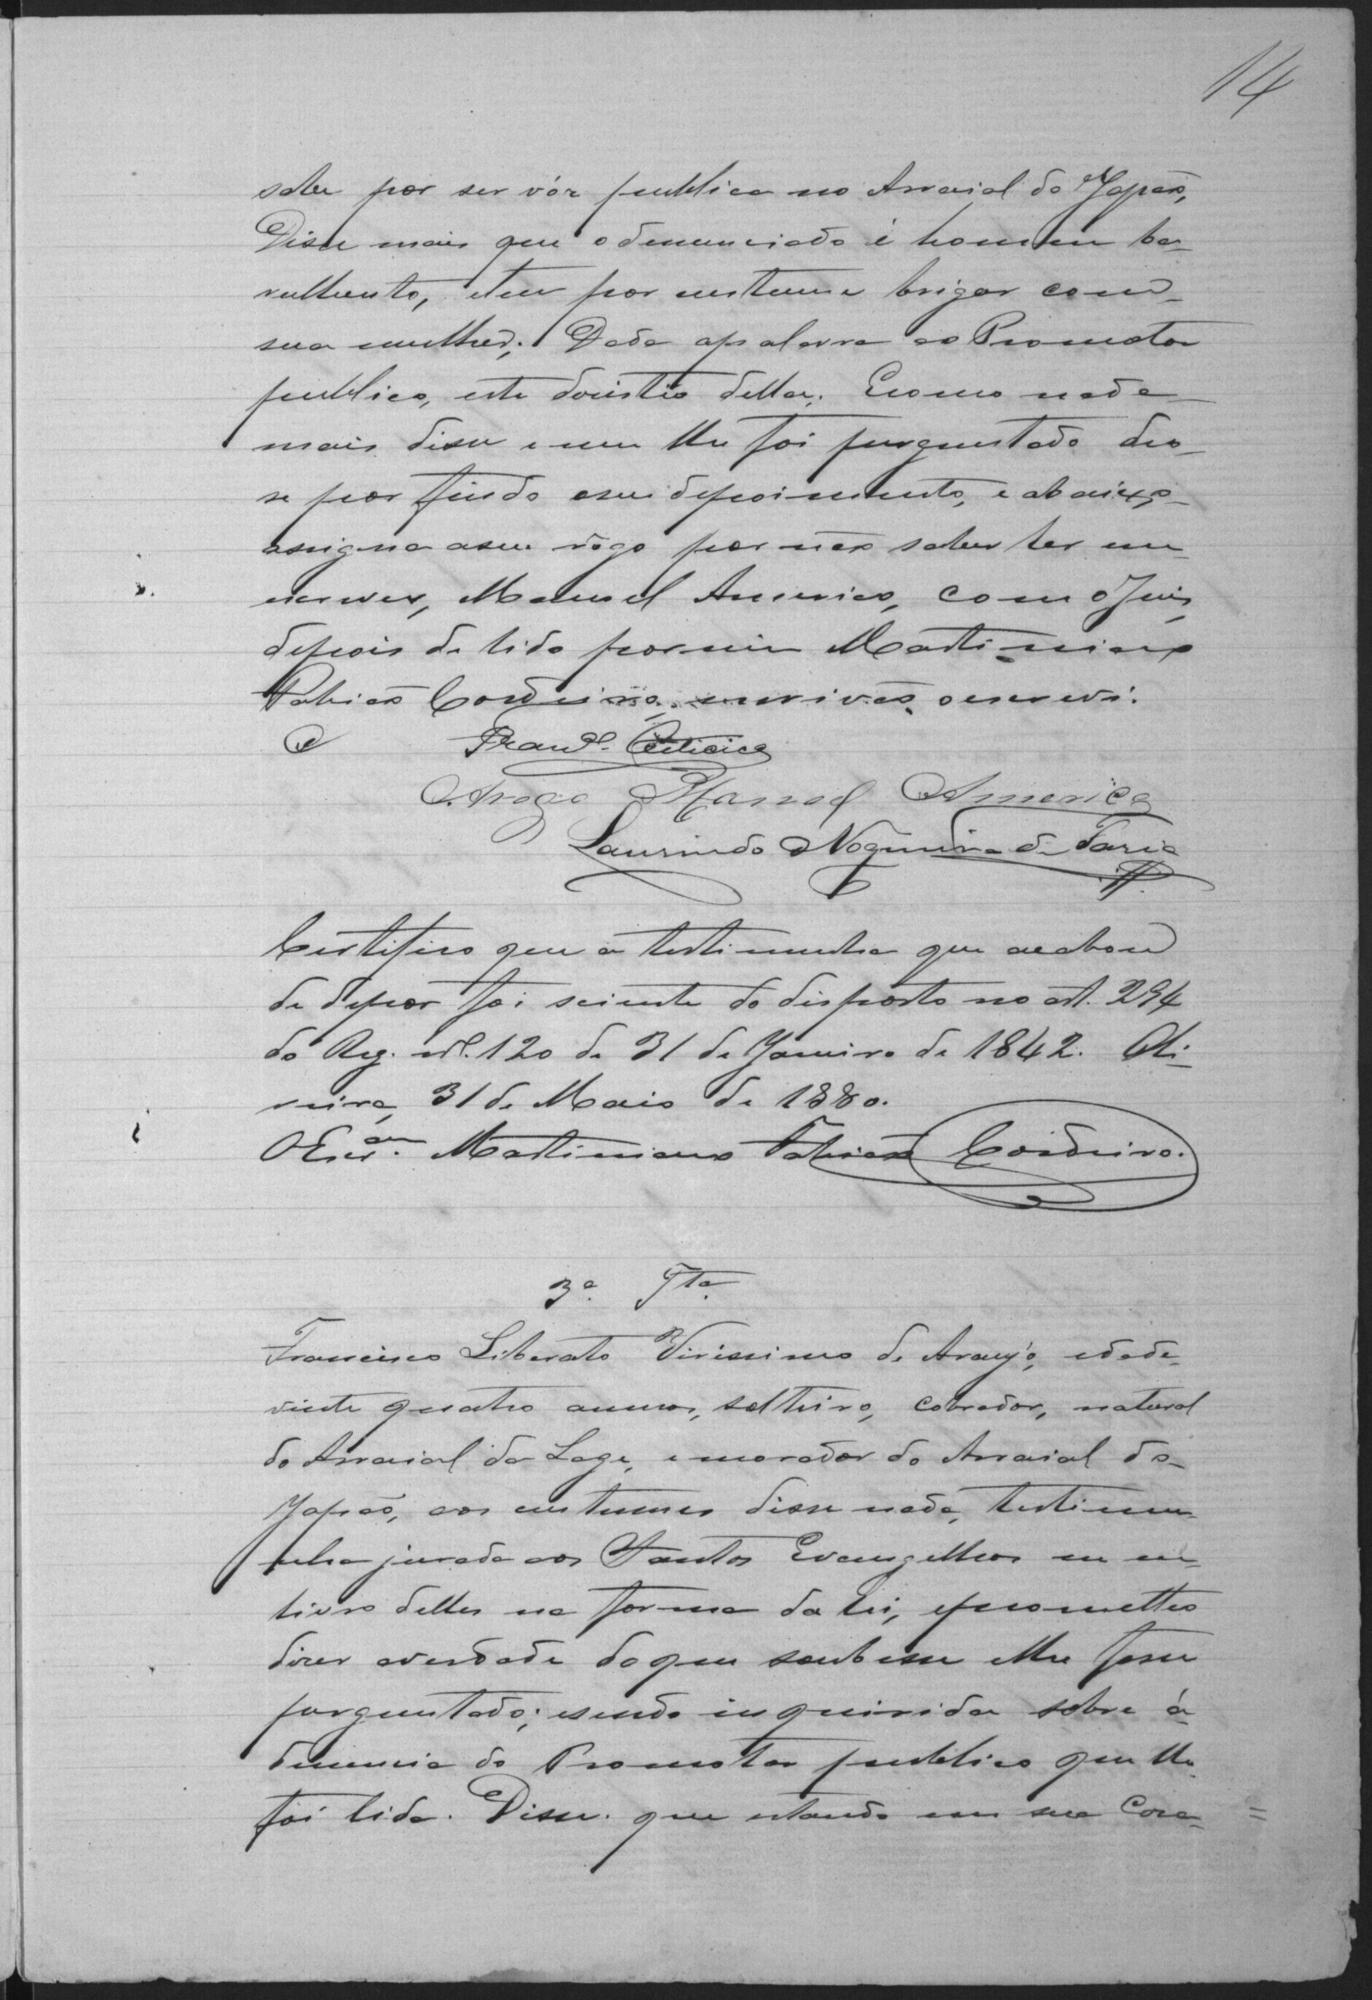 14
sabe por ser vóz publica no Arraial do Japão,
Disse mais que o denunciado é homem ba-
rulhento, e tem por custume brigar com
sua mulher; Dada apalavra ao Promotor
publico, este desistio della. E como nada
mais disse e nem lhe foi perguntado deo-
se por findo o seu depoimento, e abaixo
assigna a seu rogo por não saber ler nem
escrever, Manoel Americo, com o Juiz,
depois de lido por mim Martiniano
Fabião Cordeiro, escrivão, o escrevi.
Arogo Manoel Americo
Laurindo Nogueira de Faria
Certifico que a testimunha que acabou
de depor foi sciente do disposto no art. 294
do Reg. nº. 120 de 31 de Janeiro de 1842. Oli-
veira, 31 de Maio de 1880.
O Escr.am Martiniano Fabião Cordeiro.
3ª. Tta.
Francisco Liberato Virissimo de Araujo, edade
vinte quatro annos, solteiro, cobrador, natural
do Arraial da Lage, e morador do Arraial do
Japão, aos custumes disse nada, testimu-
nha jurada aos Santos Evangelhos em um
livro delles na forma da lei, e prometteo
dizer averdade do que soubesse e lhe fosse
perguntado; e sendo inquirida sobre á
denuncia do Promotor publico que lhe
foi lida. Disse. que estando em sua Caza =